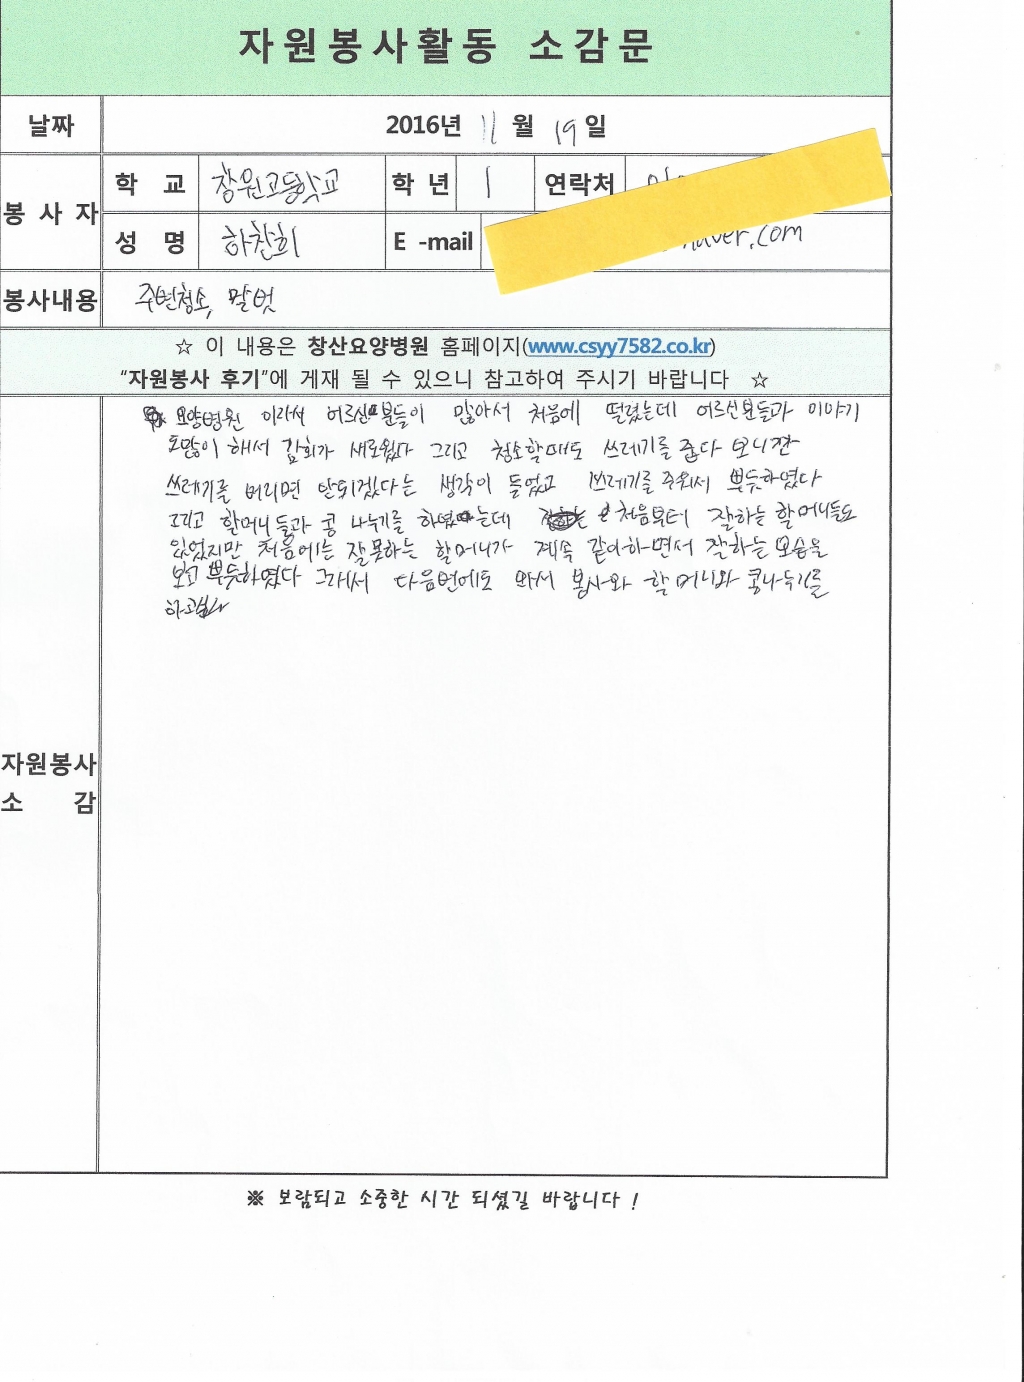 자원봉사활동 소감문
날짜 2016년 11월 19일
봉사자 학교 창원고등학교 학년 1 연락처
성명 하찬희 E-mail naver.com
봉사내용 주변청소, 말벗
☆ 이 내용은 창산요양병원 홈페이지(www.csyy7582.co.kr)
"자원봉사 후기"에 게재 될 수 있으니 참고하여 주시기 바랍니다 ☆
요양병원 이라서 어르신분들이 많아서 처음에 떨렸는데 어르신분들과 이야기
도많이 해서 감회가 새로웠다 그리고 청소할때도 쓰레기를 줍다 보니깐
쓰레기를 버리면 안되겠다는 생각이 들었고 쓰레기를 주워서 뿌듯하였다
그리고 할머니들과 콩 나누기를 하였는데 처음부터 잘하는 할머니들도
있었지만 처음에는 잘못하는 할머니가 계속 같이하면서 잘하는 모습을
보고 뿌듯하였다 그래서 다음번에도 와서 봉사와 할머니와 콩나누기를
하고싶다
자원봉사
소감
※ 보람되고 소중한 시간 되셨길 바랍니다 !